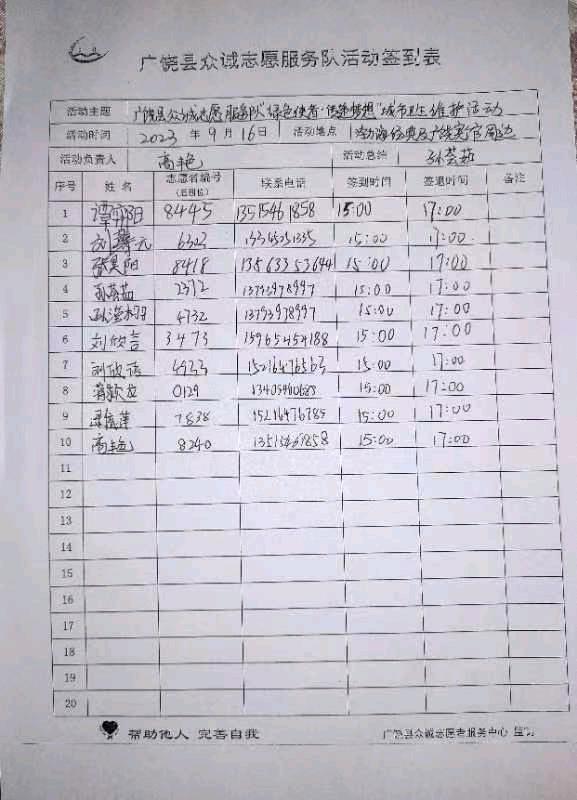 广饶县众诚志愿服务队活动签到表
活动主题 广饶县众诚志愿服务队"绿色使者·传递梦想"城市卫生维护活动
活动时间 2023 年 9 月 16 日 活动地点 渤海经典及广饶宾馆周边
活动负责人 高艳 活动总结 孙芸茹
序号 姓名 志愿者编号 (后四位) 联系电话 签到时间 签退时间 备注
1 8445 13515461858 15:00 17:00
2 15:00 17:00
3 张昊阳 8418 13563353644 15:00 17:00
4 孙芸茹 2312 13793978997 15:00 17:00
5 4732 13793978997 15:00 17:00
6 刘欣言 3473 15965454188 15:00 17:00
7 刘欣语 4933 15216476563 15:00 17:00
8 0129 15:00 17:00
9 7838 15216476785 15:00 17:00
10 高艳 8240 15:00 17:00
11
12
13
14
15
16
17
18
19
20
帮助他人 完善自我 广饶县众诚志愿者服务中心